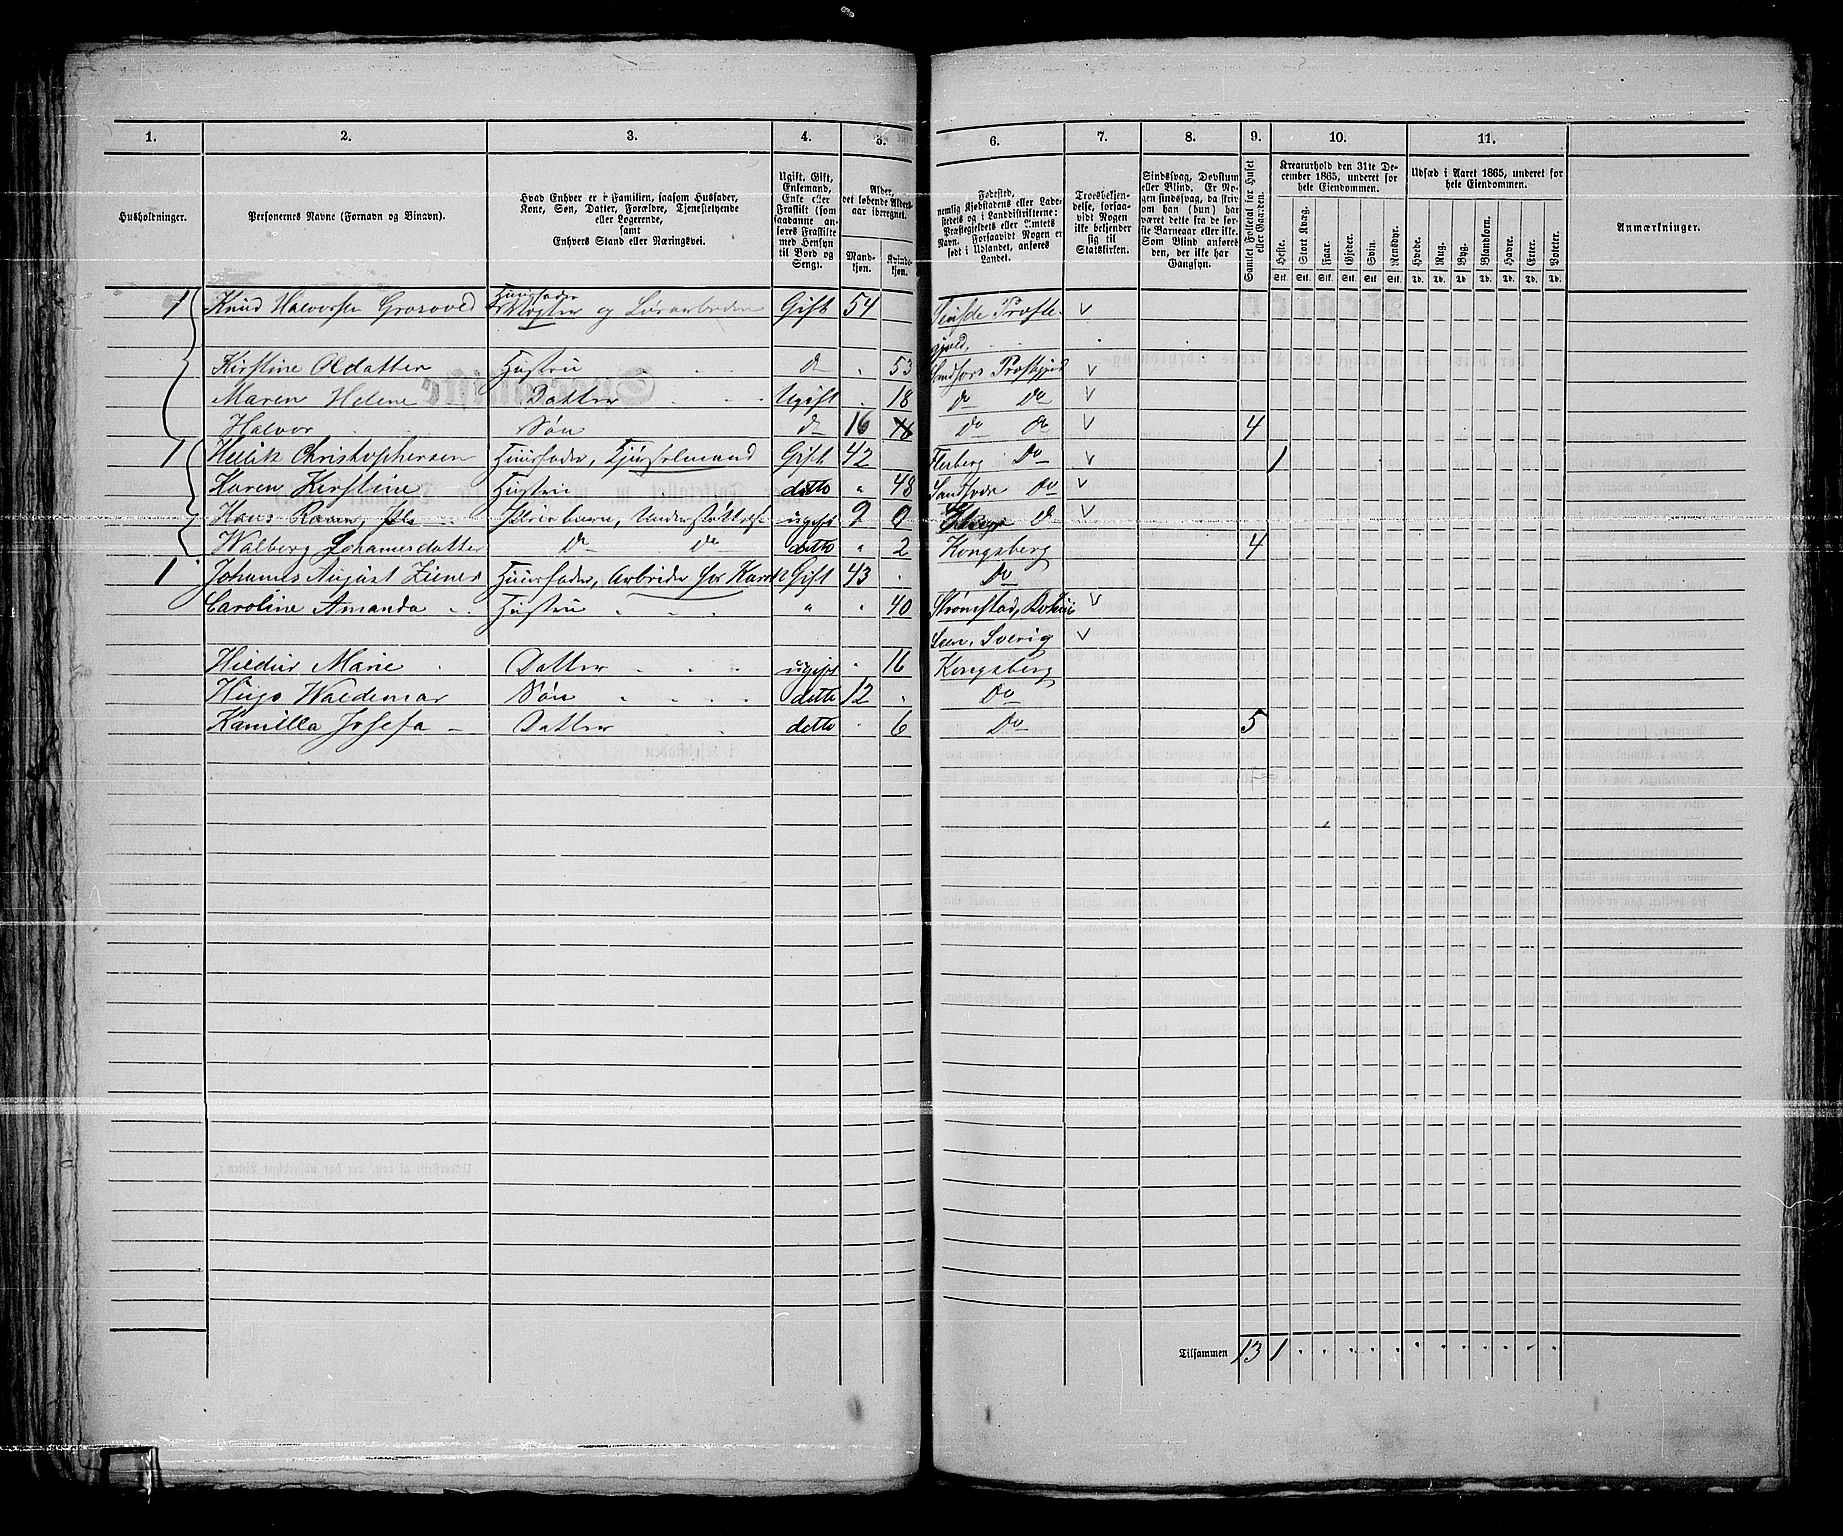 1. 2. 3. 4. 5. 6. 7. 8. 9. 10. 11.
Husholdninger.
Personernes Navne (Fornavn og Binavn).
Hvad Enhver er i Familien, saasom Husfader,
Kone, Søn, Datter, Forældre, Tjenestetyende
eller Logerende,
samt
Enhvers Stand eller Næringsvei.
Ugift, Gift,
Enkemand,
Enke eller
Fraskilt (som
saadanne an-
føres Fraskilte
med Hensyn
til Bord og
Seng).
Alder,
det løbende Alders-
aar iberegnet.
Mand-
kjøn.
Kvinde-
kjøn.
Fødested,
nemlig Kjøbstadens eller Lade-
stedets og i Landdistrikterne:
Præstegjeldets eller Amtets
Navn. Forsaavidt Nogen er
født i Udlandet, anføres
Landet.
Troesbekjen-
delse, forsaa-
vidt Nogen
ikke bekjender
sig til
Statskirken.
Sindssvag, Døvstum
eller Blind. Er No-
gen sindssvag, da skriv
om han (hun) har
været dette fra de før-
ste Barneaar eller ikke.
Som Blind anføres
den, der ikke har
Gangsyn.
Samlet Folketal for Huset
eller Gaarden.
Kreaturhold den 31te De-
cember 1865, underet for
hele Eiendommen.
Heste. Stort Kvæg. Faar. Gjeder. Svin. Rensdyr.
Stk. Stk. Stk. Stk. Stk. Stk.
Udsæd i Aaret 1865, underet for
hele Eiendommen.
Hvede. Rug. Byg. Blandkorn. Havre. Erter. Poteter.
Td. Td. Td. Td. Td. Td. Td.
Anmærkninger.
1 Knud Halvorsen Grosvold Huusfader
og Gift 54 Præste-
gjeld,
Kirstine Oldatter Hustru do 53 Sandsvær Præstgjeld
Maren Helene Datter Ugift 18 do Do
Halvor Søn do 16 do Do 4
1 Christophersen Huusfader, Gift 42 Flesberg Do 1
Karen Kirstine Hustru ditto 48 Sandsvær Do
Hans ugift 9 0 do
Walberg Johannesdatter do do ditto 2 Kongsberg 4
1 Johannes August Ziener Huusfader, Arbeider Gift 43 Do
Caroline Amanda Hustru 40 Strømstad,
Sverig
Hildur Marie Datter ugift 16 Kongsberg
Hugo Waldemar Søn ditto 12 Do
Kamilla Josefa Datter ditto 6 Do 5
Tilsammen 13 1